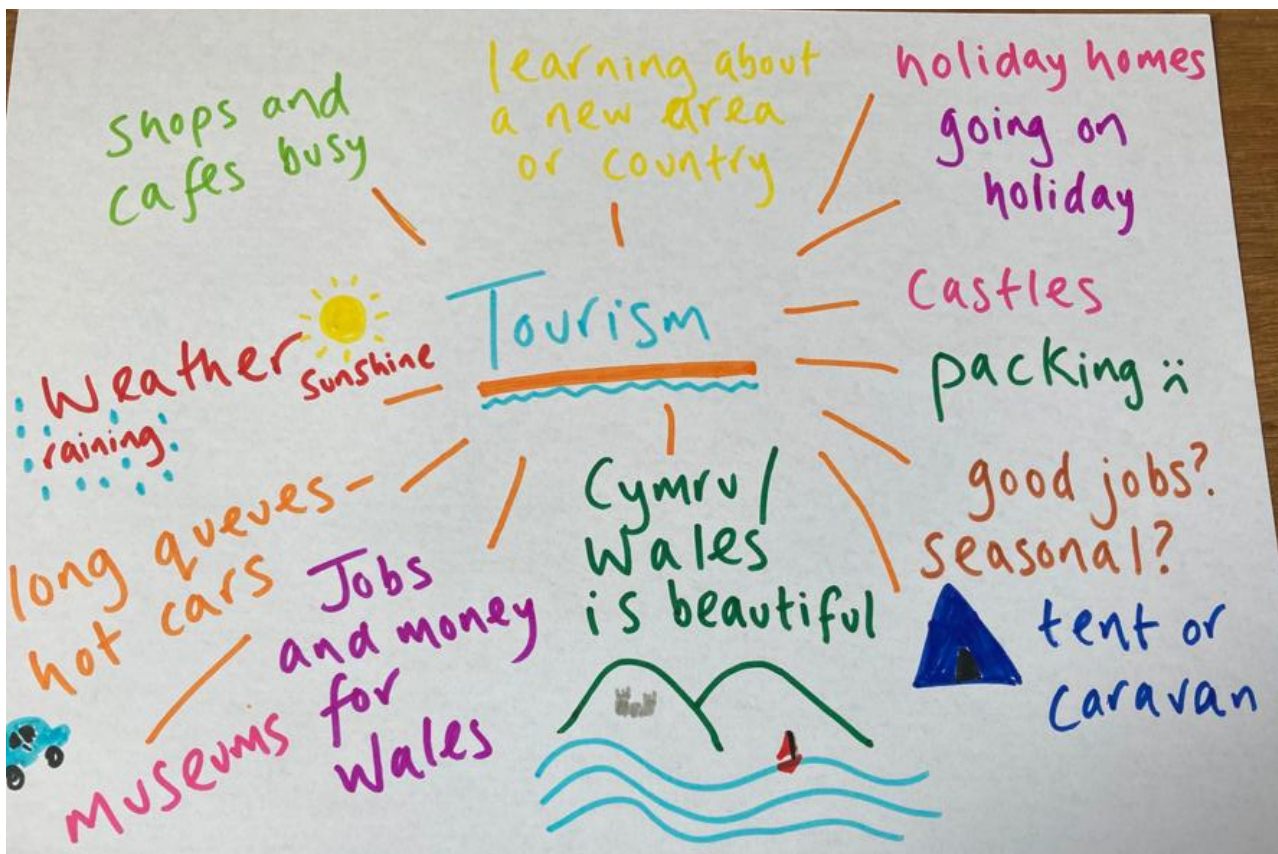 Tourism
shops and
cafes busy
learning about
a new area
or country
holiday homes
going on
holiday
castles
packing :(
good jobs?
seasonal?
tent or
caravan
Cymru/
Wales
is beautiful
Jobs
and money
for
Wales
museums
long queues
hot cars
Weather
sunshine
raining